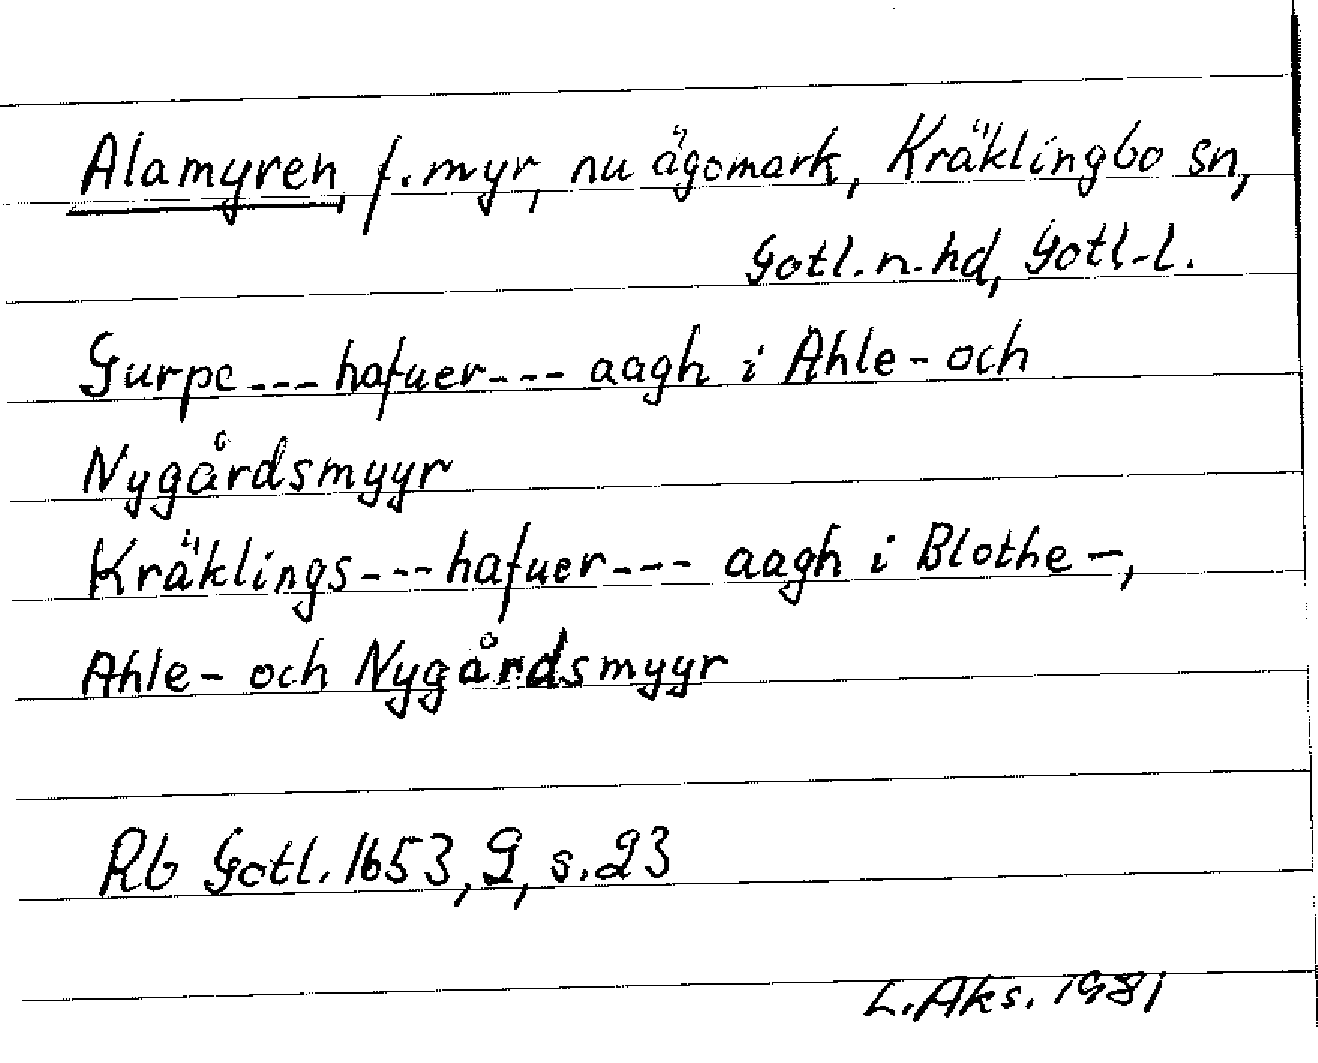 Alamyren f.myr, nu ägomark, Kräklingbo sn,
Gotl.n.hd, Gotl.l.
Gurpe --- hafuer --- aagh i Ahle- och
Nygårdsmyyr
Kräklings --- hafuer --- aagh i Blothe-,
Ahle- och Nygårdsmyyr
Rb Gotl. 1653, 2, s.23
L.Aks. 1981